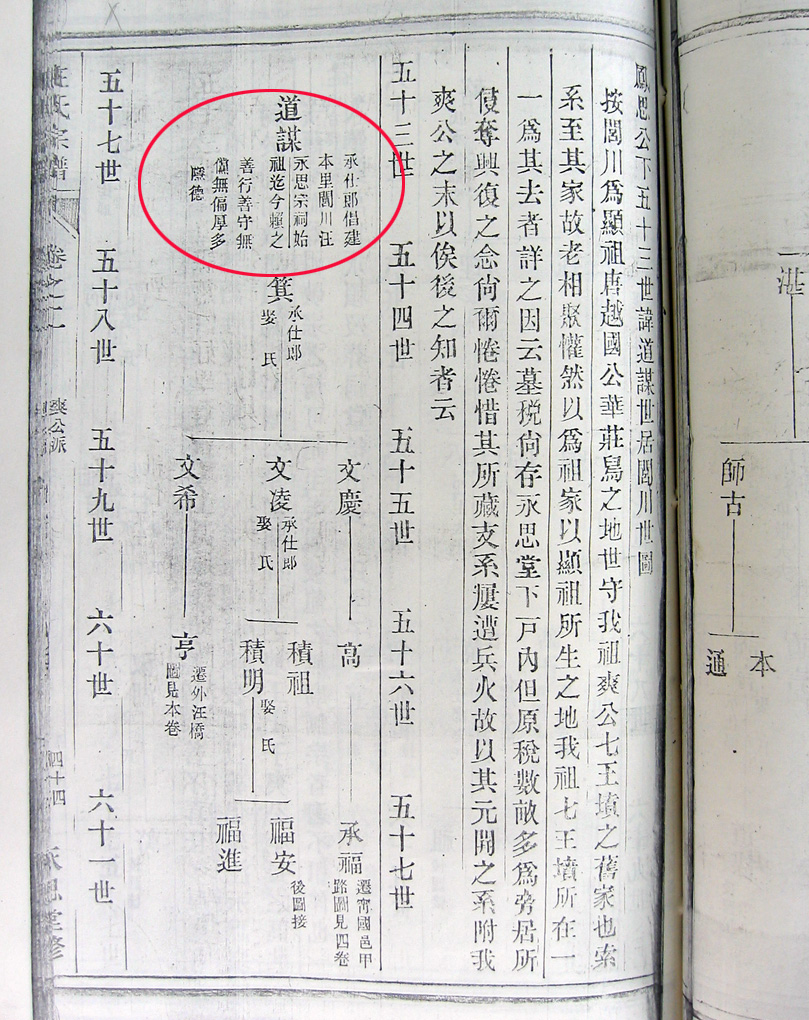 一湛
師古
本
通
鳳思公下五十三世諱道謀世居閶川世圖
按閶川爲顯祖唐越國公華莊舄之地世守我祖爽公七王墳之舊家也索
系至其家故老相聚懽然以爲祖家以顯祖所生之地我祖七王墳所在一
一爲其去者詳之因云墓税尙存永思堂下戸內但原税數畝多爲旁居所
侵奪興復之念尙爾惓惓惜其所藏支系屢遭兵火故以其元開之系附我
爽公之末以俟後之知者云
五十三世
五十四世
五十五世
五十六世
五十七世
道謀
承仕郎倡建
本里閶川汪
永思宗祠始
祖迄今賴之
善行善守無
黨無偏厚多
隱德
箕
承仕郎
娶 氏
文慶
文凌
承仕郎
娶 氏
文希
高
積祖
積明
娶 氏
亨
遷外汪橋
圖見本卷
承福
遷甯國邑甲
路圖見四卷
福安
後圖接
福進
五十七世
五十八世
五十九世
六十世
六十一世
汪氏宗譜
卷之二
爽公派
四十四
永思堂修